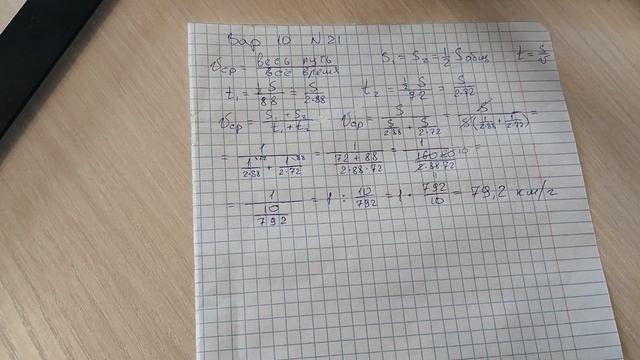 Вар 10 N21
Vср = весь путь / все время S₁ = S₂ = 1/2 S общ t = S/v
t₁ = 1/2 S / 88 = S / 2·88 t₂ = 1/2 S / 72 = S / 2·72
Vср = S₁ + S₂ / t₁ + t₂ Vср = S / (S / 2·88 + S / 2·72) = S / S(1 / 2·88 + 1 / 2·72) =
= 1 / (1 / 2·88 + 1 / 2·72) = 1 / (72 + 88 / 2·88·72) = 1 / (160 80 10 / 2·88·72) =
= 1 / (10 / 792) = 1 : 10/792 = 1 · 792/10 = 79,2 км/г